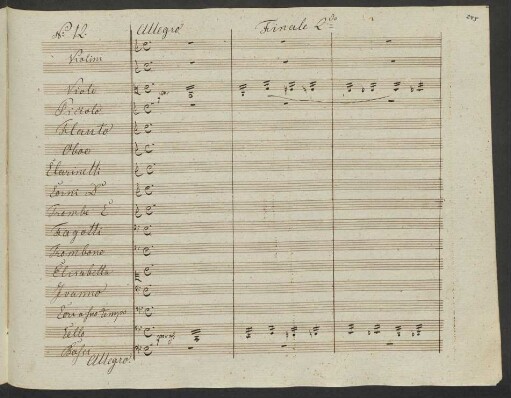 No. 12.
Allegro
Finale 2do
Violini
Viole
Piccolo
Flauto
Oboe
Clarinetti
Corni D
Trombe E
Fagotti
Trombone
Elisabetta
Ivanno
Cello
Bassi
Allegro